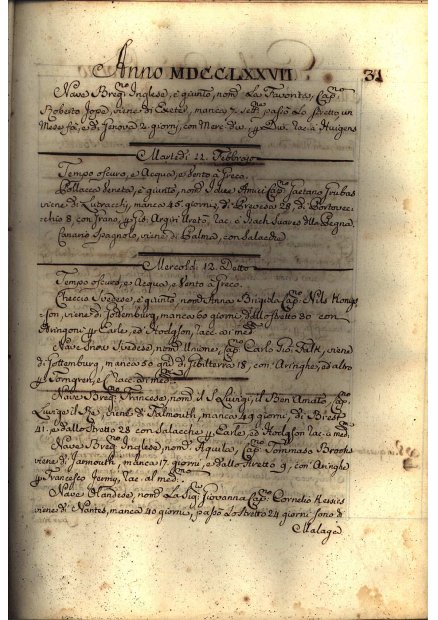 Anno MDCCLXXVII
31
Nave Breg.no Inglese, è giunto, nom.o La Favorita, Cap.no
Roberto Jope, viene di Exeter, manca 7 sett.e passò Lo stretto un
Mese fà, e di Genova 2 giorni, con Merc. div. p Div. rac. a Huigens
Martedì 11. Febbrajo
Tempo oscuro, e Acqua, e Vento à Greco.
Pollacca Veneta, è giunto, nom.o I due Amici Cap.no Gaetano
viene di manca 45 giorni, di Prevesa 28, di Portovec-
chio 8, con Grano, p Sid. Argiri rac. a Isach Suares della Pegna.
Canario Spagnolo, viene di Palma, con Salacche
Mercoldì 12. Detto
Tempo oscuro, e Acqua, e Vento à Greco.
Checcia Svedese, è giunto, nom.o Anna Brigida Cap.no Nils
son, viene di Gottemburg, manca 60 giorni dallo stretto 30 con
Aringoni p Earle, ed Hodgson, rac. a i med.
Nave Svedese, nom.o Unione, Cap.no Carlo Gio: Falk, viene
di Gottemburg, manca 50 gni di Gibilterra 18, con Aringhe, ed altro
p Torngren, e C. rac. ai med.
Nave Breg.no Francese, nom.o il S Luigi, il Ben Amato, Cap.
Luigi il viene di Falmouth, manca 49 giorni, di Brest
41. e dallo Stretto 28 con Salacche p Earle, ed Hodgson rac. a i med.
Nave Breg.no Inglese, nom.o Aquila, Cap.no Tommaso Brooks
viene di Jarmouth, manca 17 giorni, e dallo stretto 9, con Aringhe
p Francesco Jermy, rac. al med.
Nave Olandese, nom.o La Sig.ra Giovanna Cap.no Cornelio
viene di Nantes, manca 40 giorni, passò Lo stretto 24 giorni sono di
Malaga